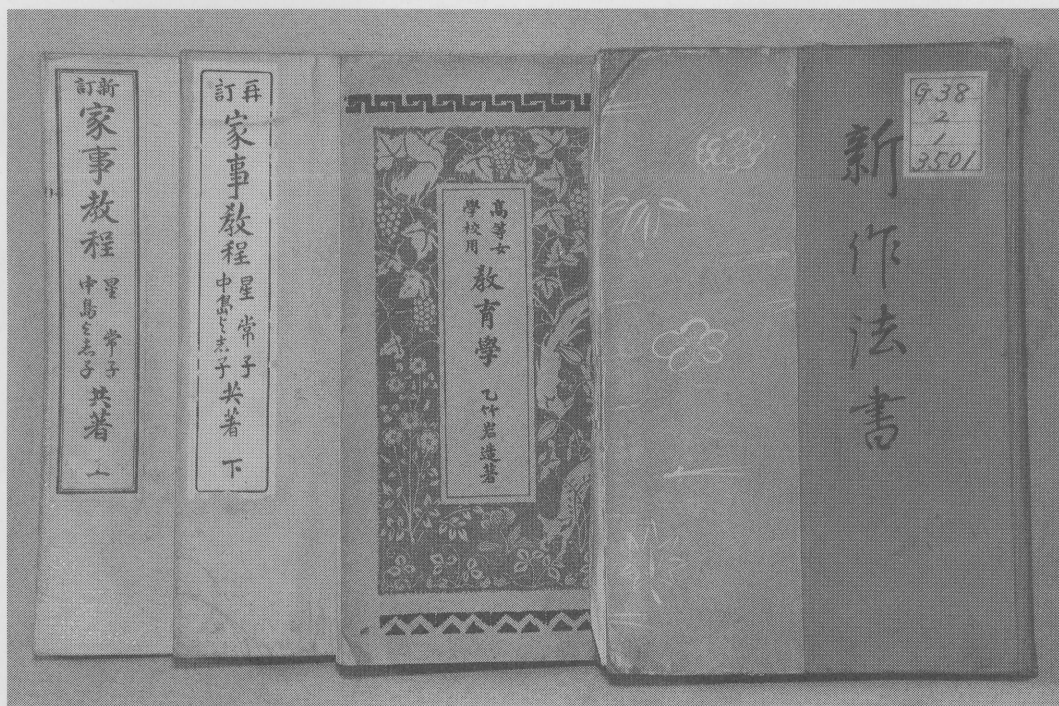 新訂
家事教程
星常子
中島よし子
共著
上
再訂
家事教程
星常子
中島よし子
共著
下
高等女
學校用
教育學
乙竹岩造著
新作法書
G38
2
1
3501